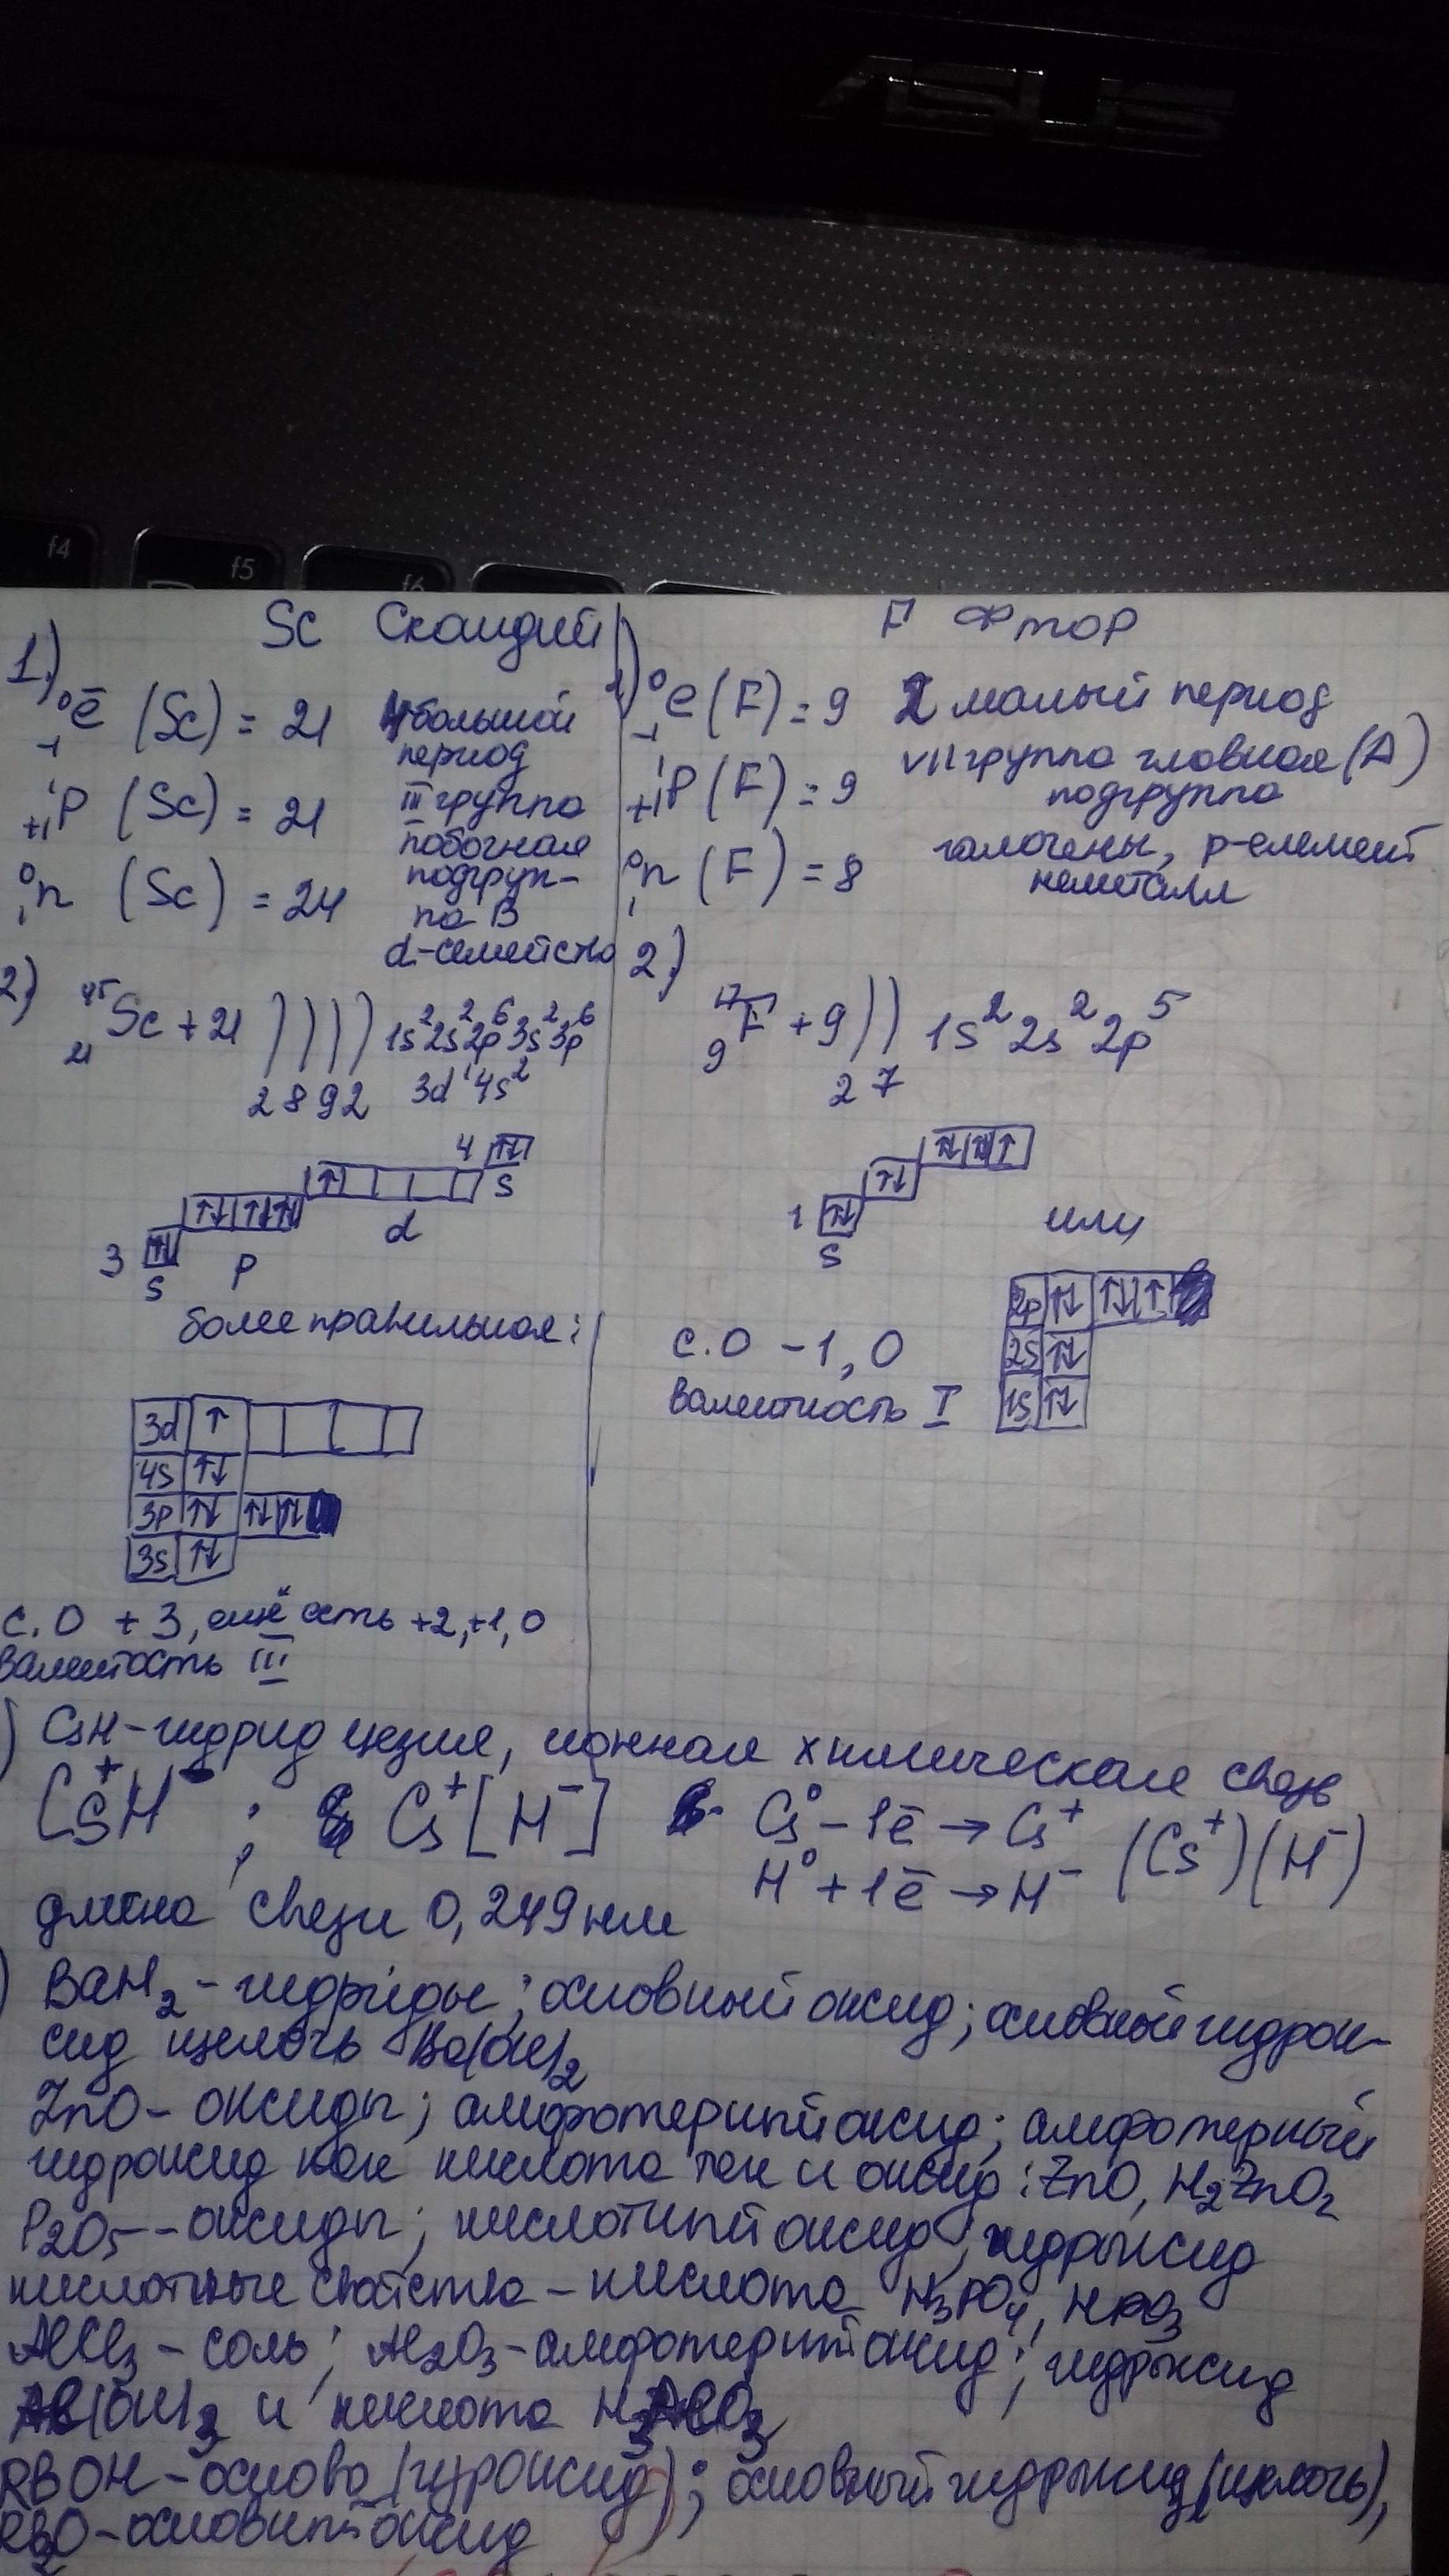 ASUS
f4 f5 f6
Sc Скандий
1)
⁰₋₁ē (Sc) = 21
¹₊₁p (Sc) = 21
⁰₁n (Sc) = 24
4 большой
период
III группа
побочная
подгруп-
па B
d-семейство
2)
⁴⁵₂₁Sc +21 ) ) ) ) 1s²2s²2p⁶3s²3p⁶
2 8 9 2 3d¹4s²
4 ↑↓
↑ s
↑↓ ↑↓ ↑↓ d
3 ↑↓ p
s
более правильная:
3d ↑
4s ↑↓
3p ↑↓ ↑↓ ↑↓
3s ↑↓
с.О +3, ещё есть +2,+1,0
валентость III
F Фтор
1)
⁰₋₁e (F) = 9
¹₊₁p (F) = 9
⁰₁n (F) = 8
2 малый период
VII группа главная (A)
подгруппа
галочены, p-елемент
неметалл
2)
¹⁷₉F +9 ) ) 1s²2s²2p⁵
2 7
↑↓ ↑↓ ↑
↑↓
1 ↑↓
s
или
2p ↑↓ ↑↓ ↑
2s ↑↓
1s ↑↓
с.О -1, 0
валентность I
) CsH - гидрид цезия, ионная химическая связь
Cs⁺H⁻ ; Cs⁺[H⁻] Cs⁰ - 1ē → Cs⁺
H⁰ + 1ē → H⁻ (Cs⁺)(H⁻)
длина связи 0,249 нм
) BaH₂ - гидриды; основный оксид; основный гидрок-
сид щелочь Ba(OH)₂
ZnO - оксиды; амфотерный оксид; амфотерный
гидроксид как кислота так и оксид: ZnO, H₂ZnO₂
P₂O₅ - оксиды; кислотный оксид; гидроксид
кислотные свойства - кислота H₃PO₄, HPO₃
AlCl₃ - соль; Al₂O₃ - амфотерный оксид; гидроксид
Al(OH)₃ и кислота H₃AlO₃
RBOH - основа (гидроксид); основный гидроксид (щелочь),
RB₂O - основный оксид